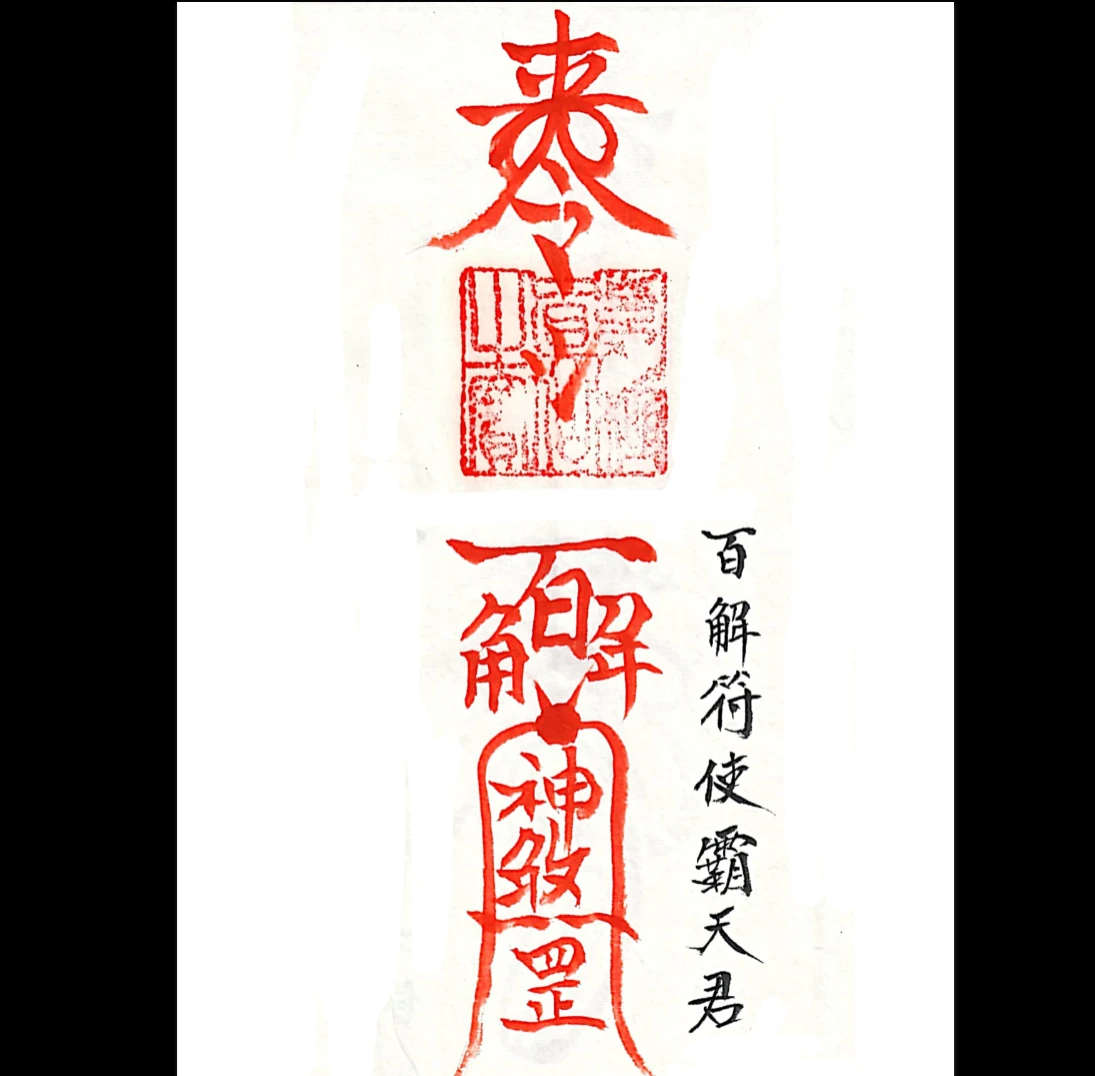 令
百解
神煞
罡
百解符使霸天君